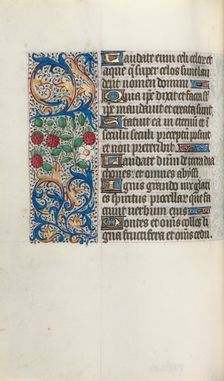 Laudate eum celi celor et
aque q̃ super celos sunt lau
dent nomen domini
Quia ip̃e dixit et facta sũt
ip̃e mandavit et creata sũt
Statuit ea in eternũ et ĩ
seculũ seculi preceptũ posuit
et non preteribit
Laudate dñm de terra dra
chones et omnes abyssi
Ignis grando nix glaties
spiritus procellar que fa
ciunt verbum eius
Montes et omnes colles li
gna fructifera et om̃s cedri